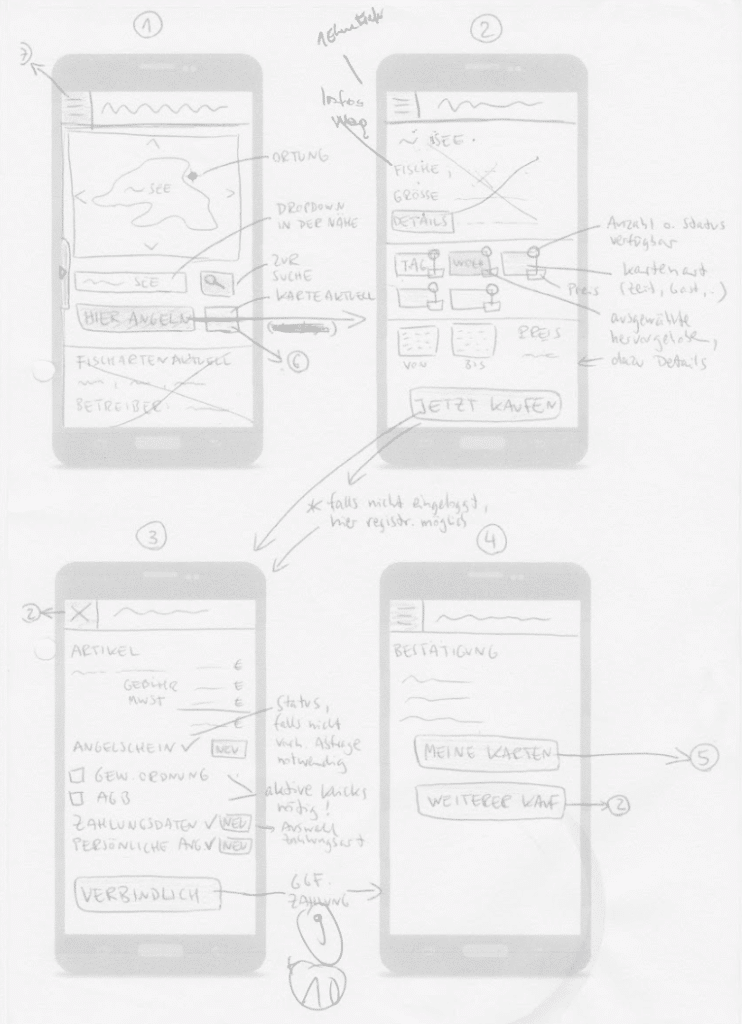 1
7
SEE
ORTUNG
DROPDOWN
IN DER NÄHE
SEE
ZUR
SUCHE
HIER ANGELN
KARTE AKTUELL
6
FISCHARTEN AKTUELL
BETREIBER
2
Infos
weg
SEE
FISCHE,
GRÖSSE
DETAILS
Anzahl o. Status
verfügbar
TAG
Kartenart
(Zeit, Gast, ..)
Preis
ausgewählte
hervorgehoben,
dazu Details
PREIS
VON
BIS
JETZT KAUFEN
* falls nicht eingeloggt,
hier registr. möglich
3
2
ARTIKEL
€
GEBÜHR
€
MWST
€
€
Status,
falls nicht
vorh. Abfrage
notwendig
ANGELSCHEIN ✓
NEU
GEW. ORDNUNG
AGB
aktive klicks
nötig!
ZAHLUNGSDATEN ✓
NEU
Auswahl
Zahlungsart
PERSÖNLICHE ANG ✓
NEU
VERBINDLICH
GGF.
ZAHLUNG
9
10
4
BESTÄTIGUNG
MEINE KARTEN
5
WEITERER KAUF
2